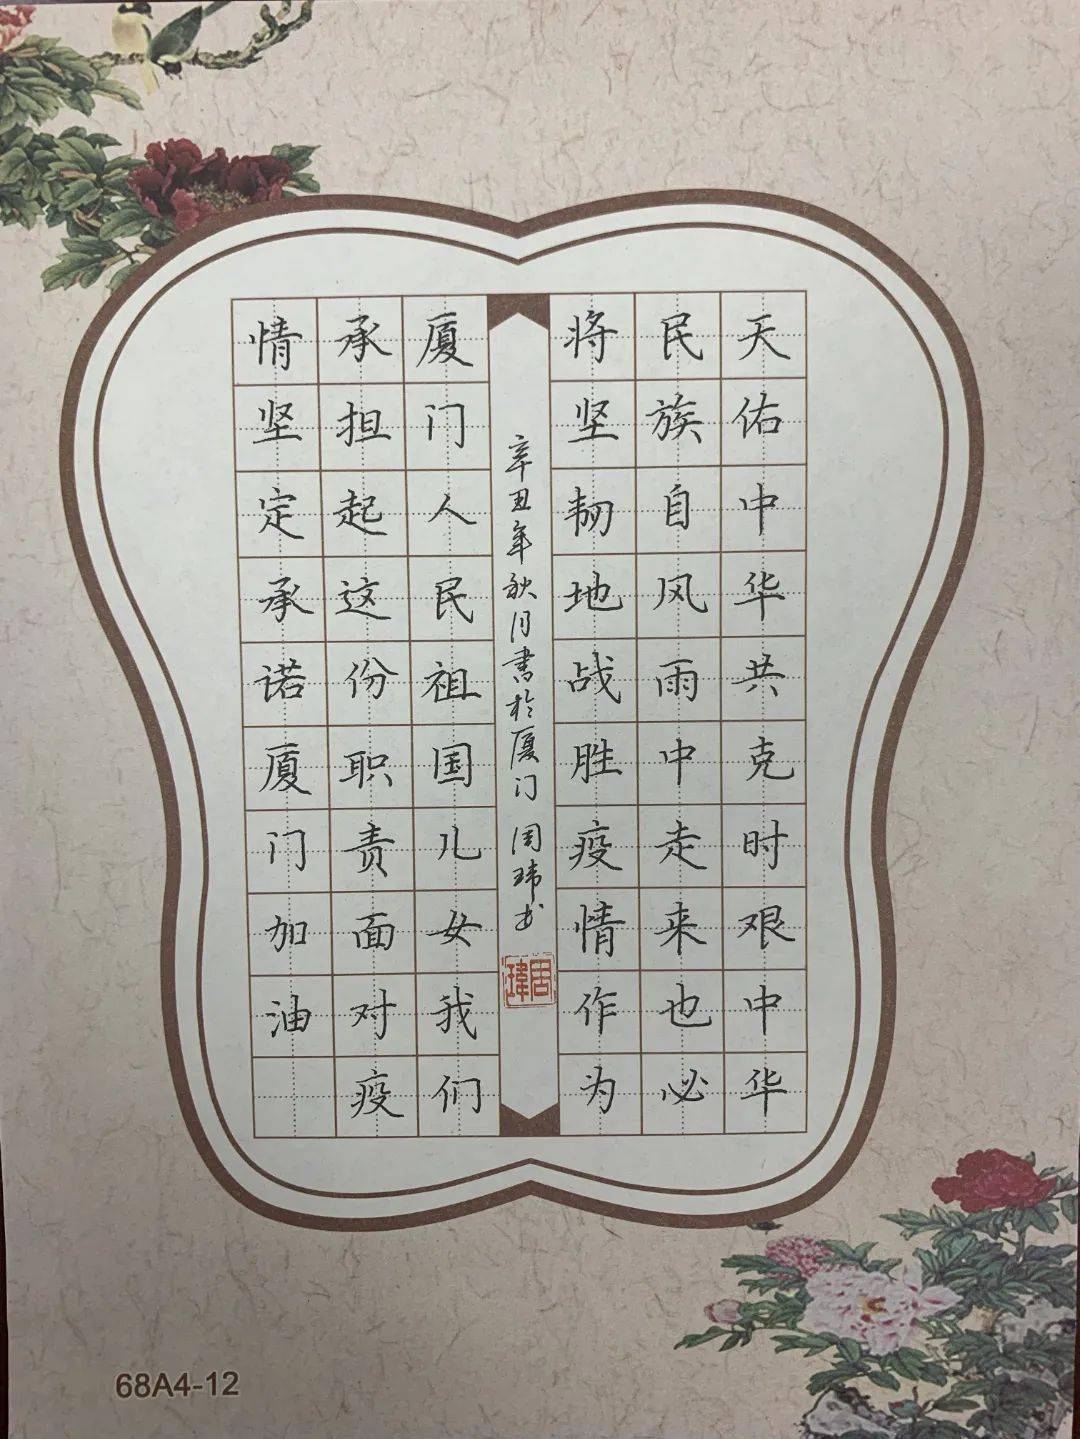 天佑中华共克时艰中华
民族自风雨中走来也必
将坚韧地战胜疫情作为
厦门人民祖国儿女我们
承担起这份职责面对疫
情坚定承诺厦门加油
辛丑年秋月書於厦门 周玮书
周瑋
68A4-12